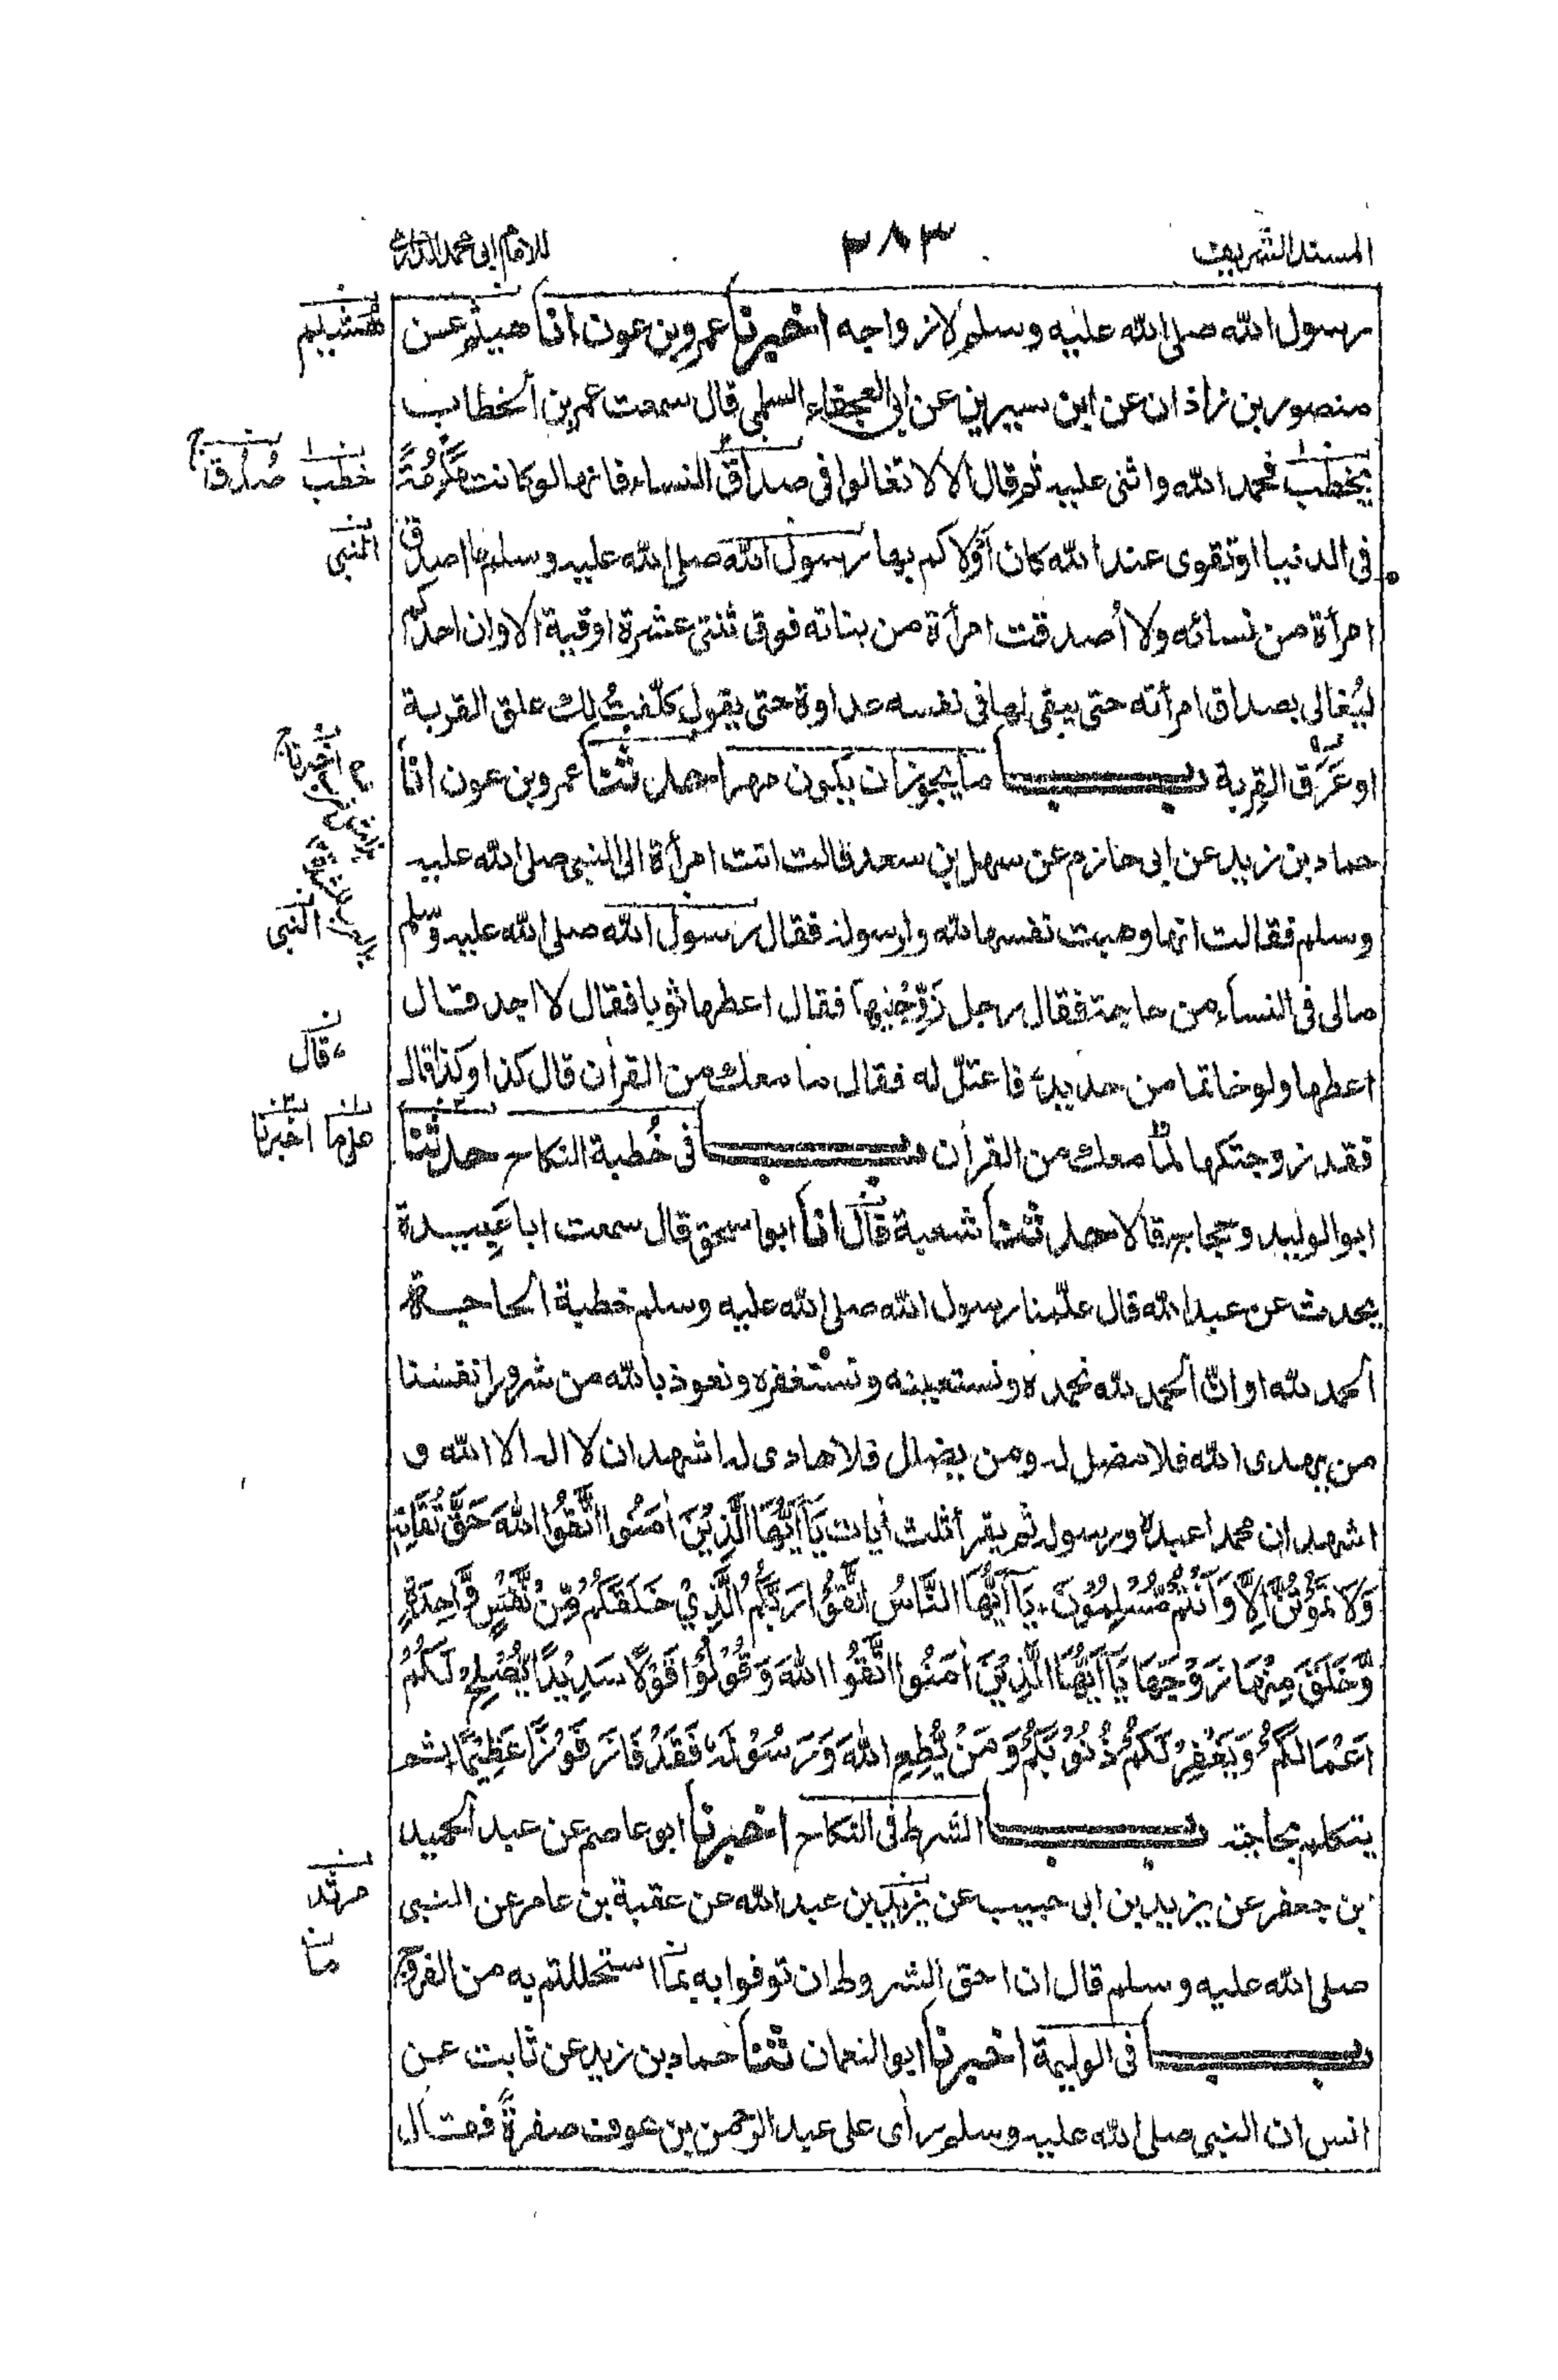 المسند الشريف
٣٨٣
للامام ابى محمد الدارمى
رسول الله صلى الله عليه وسلم لازواجه اخبرنا عمرو بن عون انا هيثم عن
هشيم
منصور بن زاذان عن ابن سيرين عن ابى العجفاء السلمى قال سمعت عمر بن الخطاب
يخطب فحمد الله واثنى عليه ثم قال الا لا تغالوا فى صداق النساء فانها لو كانت مَكْرُمَةً
خطب صُدُق
فى الدنيا او تقوى عند الله كان اَوْلاكم بها رسول الله صلى الله عليه وسلم ما اصدق
النبى
امرأة من نسائه ولا اُصدقت امرأة من بناته فوق ثنتى عشرة اوقية الا وان احدكم
ليُغالى بصداق امرأته حتى يبقى لها فى نفسه عداوة حتى يقول كلّفتُ لك علق القربة
او عَرَق القِربة باب ما يجوز ان يكون مهرا حدثنا عمرو بن عون انا
اخبرنا
حماد بن زيد عن ابى حازم عن سهل بن سعد قالت اتت امرأة الى النبى صلى الله عليه
وسلم فقالت انها وهبت نفسها لله ولرسوله فقال رسول الله صلى الله عليه وسلم
النبى
مالى فى النساء من حاجة فقال رجل زَوِّجْنِيها فقال اعطها ثوبا فقال لا اجد قال
اعطها ولو خاتما من حديد فاعتلّ له فقال ما معك من القراٰن قال كذا وكذا قال
قال
فقد زوجتكها لما معك من القراٰن باب فى خُطبة النكاح حدثنا
على ما اخبرنا
ابو الوليد وحجاج قالا حدثنا شعبة قال انا ابو اسحق قال سمعت ابا عبيدة
يحدث عن عبد الله قال علّمنا رسول الله صلى الله عليه وسلم خطبة الحاجة
الحمد لله او انّ الحمد لله نحمده ونستعينه ونستغفره ونعوذ بالله من شرور انفسنا
من يهدى الله فلا مضل له ومن يضلل فلا هادى له اشهد ان لا اله الا الله و
اشهد ان محمدا عبده ورسوله ثم يقرأ ثلث اٰيات يَآ اَيُّهَا الَّذِيْنَ اٰمَنُوا اتَّقُوا اللهَ حَقَّ تُقَاتِهٖ
وَلَا تَمُوْتُنَّ اِلَّا وَاَنْتُمْ مُّسْلِمُوْنَ، يَآ اَيُّهَا النَّاسُ اتَّقُوْا رَبَّكُمُ الَّذِيْ خَلَقَكُمْ مِّنْ نَّفْسٍ وَّاحِدَةٍ
وَّخَلَقَ مِنْهَا زَوْجَهَا يَآ اَيُّهَا الَّذِيْنَ اٰمَنُوا اتَّقُوا اللهَ وَقُوْلُوْا قَوْلًا سَدِيْدًا يُّصْلِحْ لَكُمْ
اَعْمَالَكُمْ وَيَغْفِرْ لَكُمْ ذُنُوْبَكُمْ وَمَنْ يُّطِعِ اللهَ وَرَسُوْلَهٗ فَقَدْ فَازَ فَوْزًا عَظِيْمًا ثم
يتكلم بحاجته باب الشرط فى النكاح اخبرنا ابو عاصم عن عبد الحميد
بن جعفر عن يزيد بن ابى حبيب عن يزيد بن عبد الله عن عقبة بن عامر عن النبى
مرثد
صلى الله عليه وسلم قال ان احق الشروط ان توفوا به بما استحللتم به من الفروج
ما
باب فى الوليمة اخبرنا ابو النعمان ثنا حماد بن زيد عن ثابت عن
انس ان النبى صلى الله عليه وسلم رأى على عبد الرحمن بن عوف صفرةً فقال